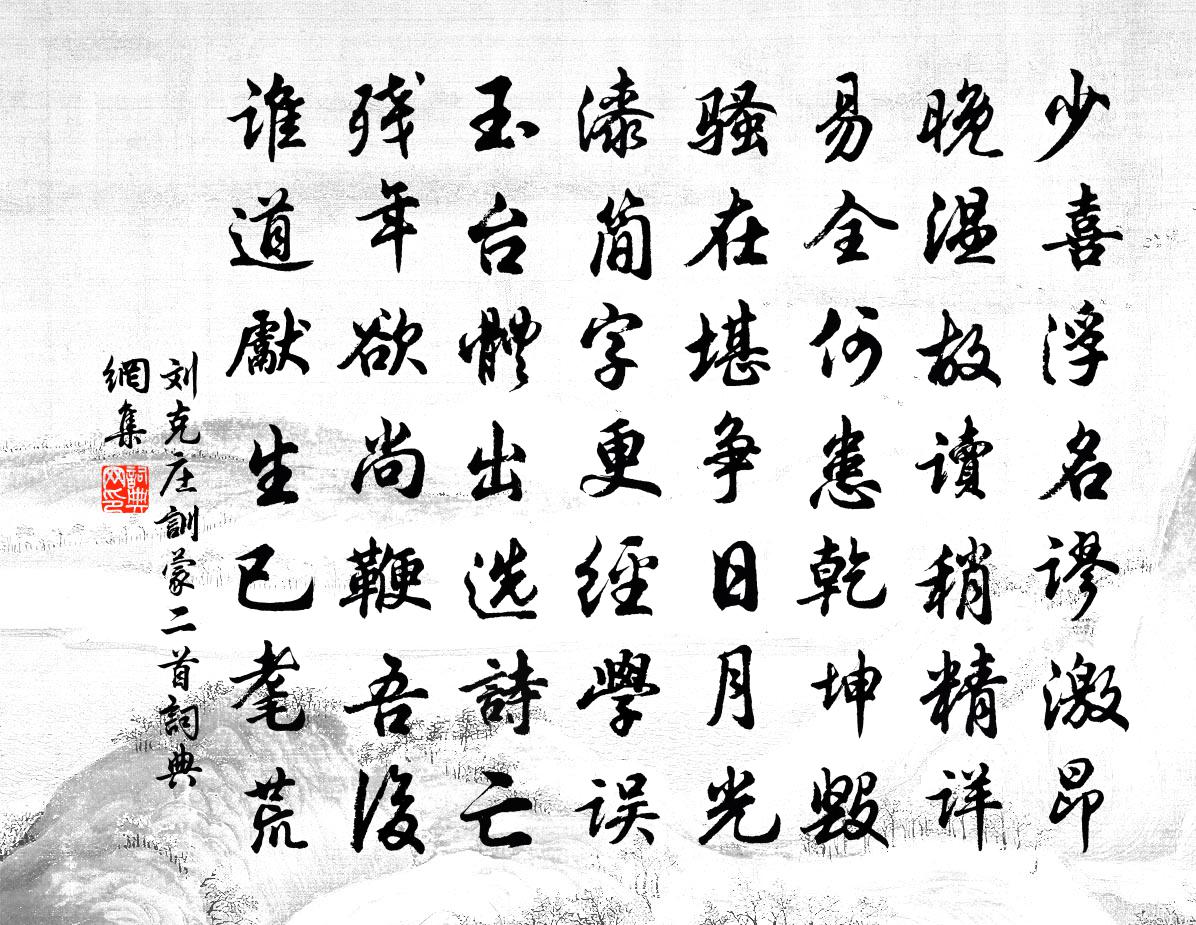 少喜浮名謬激昂
晚温故讀稍精詳
易全何患乾坤毀
騷在堪争日月光
漆简字更經學误
玉台體出选詩亡
残年欲尚鞭吾後
谁道獻生已耄荒
刘克庄訓蒙二首詞典
網集
詞典网印